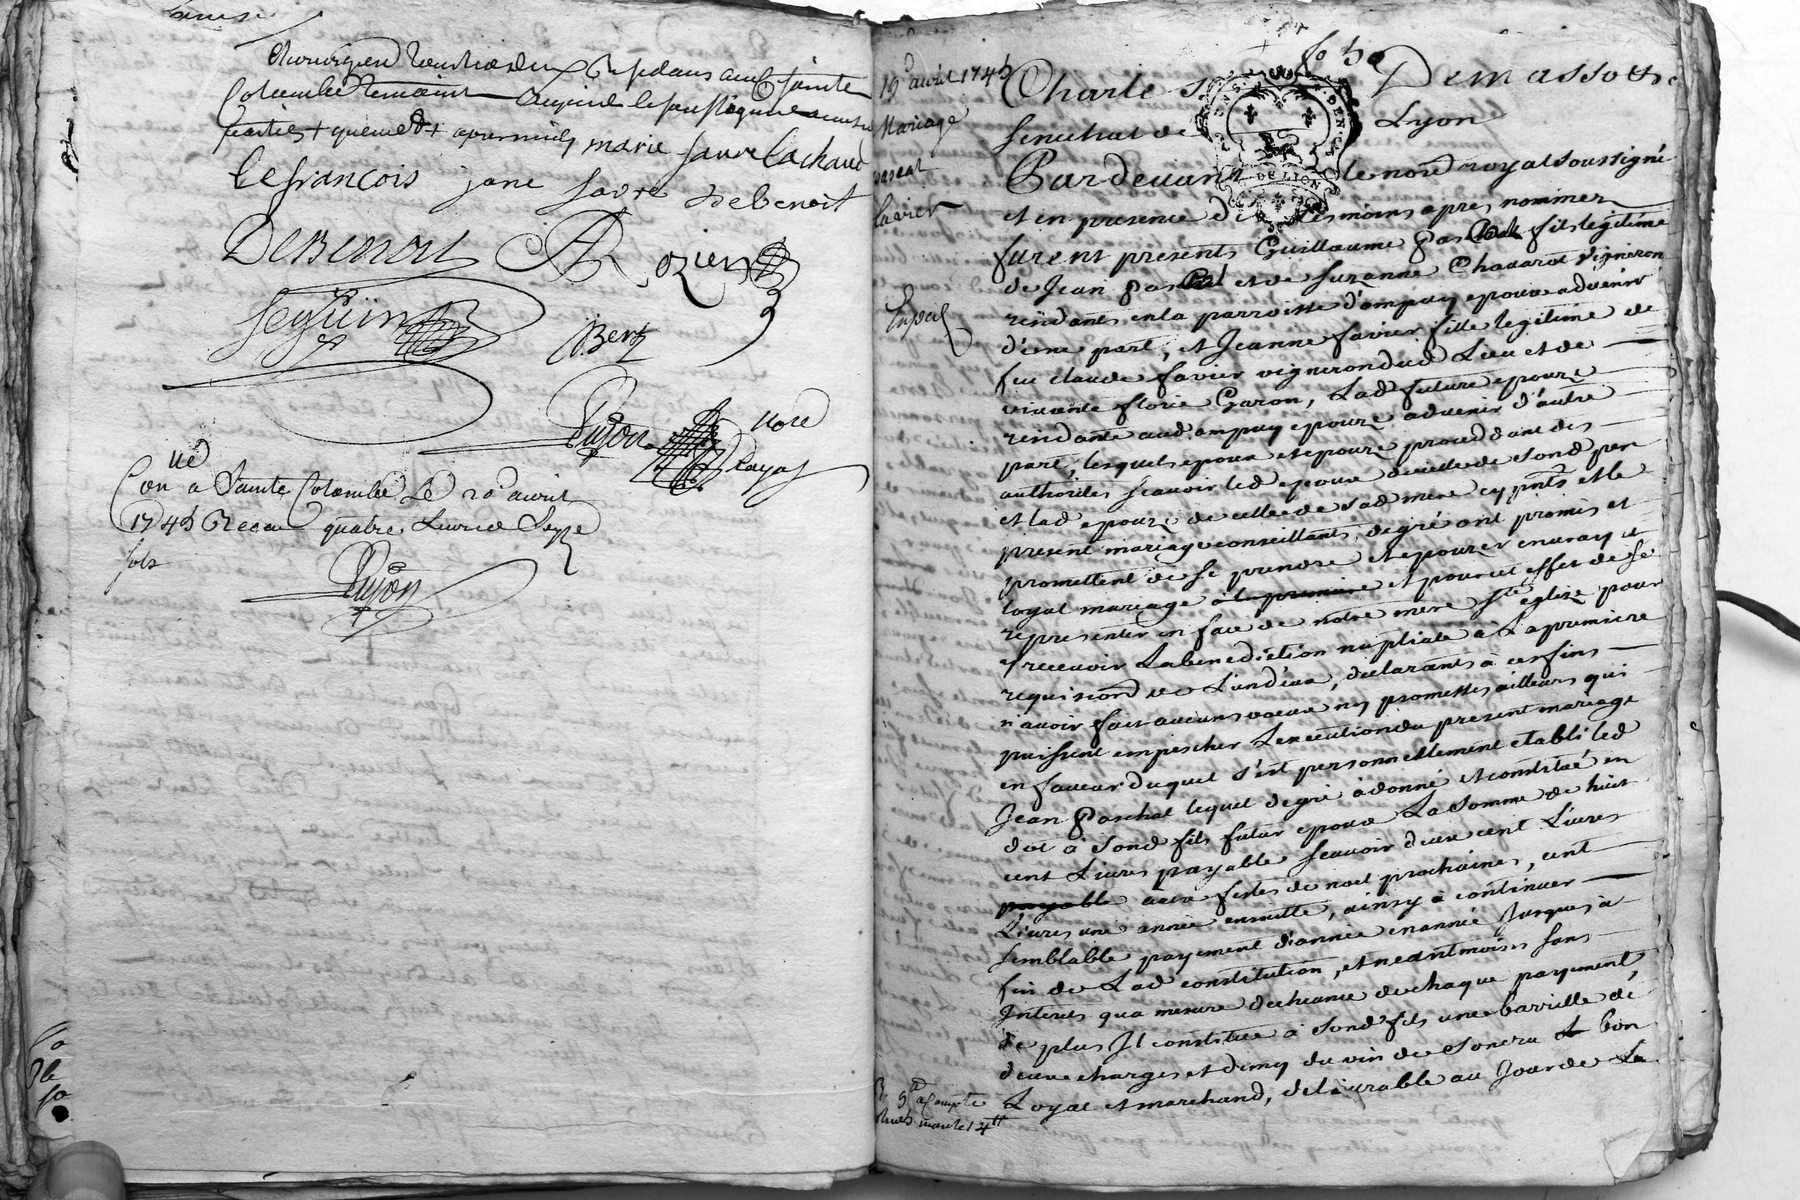 Colombe
parties + quemed + apermille marie favre Lachaud
lefrancois jane favre debenoit
DeBenoit Rozier
Seguin
Bert
Pujon
Nore
Royal
Con à Sainte Colombe Le 20 avril
1745 Receu quatre Livres Seze
sols
Pujon
19 avril 1745
Mariage
pascal
favier
Exped
fo 50
Charle s Demassotte
senechal de Lyon
BUSI DEN.C
DE LION
Pardevant le nore royal soussigné
et en presence de tesmoins apres nommez
furent presents Guillaume paschal fils légitime
de Jean paschal et de suzanne Chadarot vigneron
residants en la parroisse d'ampuy epoux advenir
d'une part, et Jeanne favier fille legitime de
feu claude favier vigneron dud Lieu et de
vivante florie Garon, Lad future epouze
residante aud ampuy epouze advenir d'autre
part, lesquels epoux et epouze proceddant des
authorites scavoir led epoux de celle de sond pere
et lad epouze de celle de sad mere cy pnts et le
present mariage conseillants, de gré ont promis et
promettent de se prendre et epouzer en vray et
loyal mariage a la premiere et pour cet effet de se
representer en face de notre mere ste eglize pour
y recevoir La benediction nuptiale à La premiere
requisition de L'un d'eux, declarants à ces fins
n'avoir fait aucuns voeux ny promesses ailleurs qui
puissent empescher L'execution du present mariage
en faveur duquel s'est personnellement etabli led
Jean paschal lequel de gré à donné et constitué en
dot à sond fils futur epoux La somme de huit
cent Livres payable scavoir deux cent Livres
payable aux festes de noel prochaines, cent
Livres une année ensuitte, ainsy à continuer
semblable payement d'année en année Jusques à
fin de Lad constitution, et neantmoins sans
Interets qu'a mesure decheance de chaque payement,
de plus Il constitue à sond fils une barrille de
deux charges et demy du vin de son cru et bon
Loyal et marchand, delivrable au Jour de La